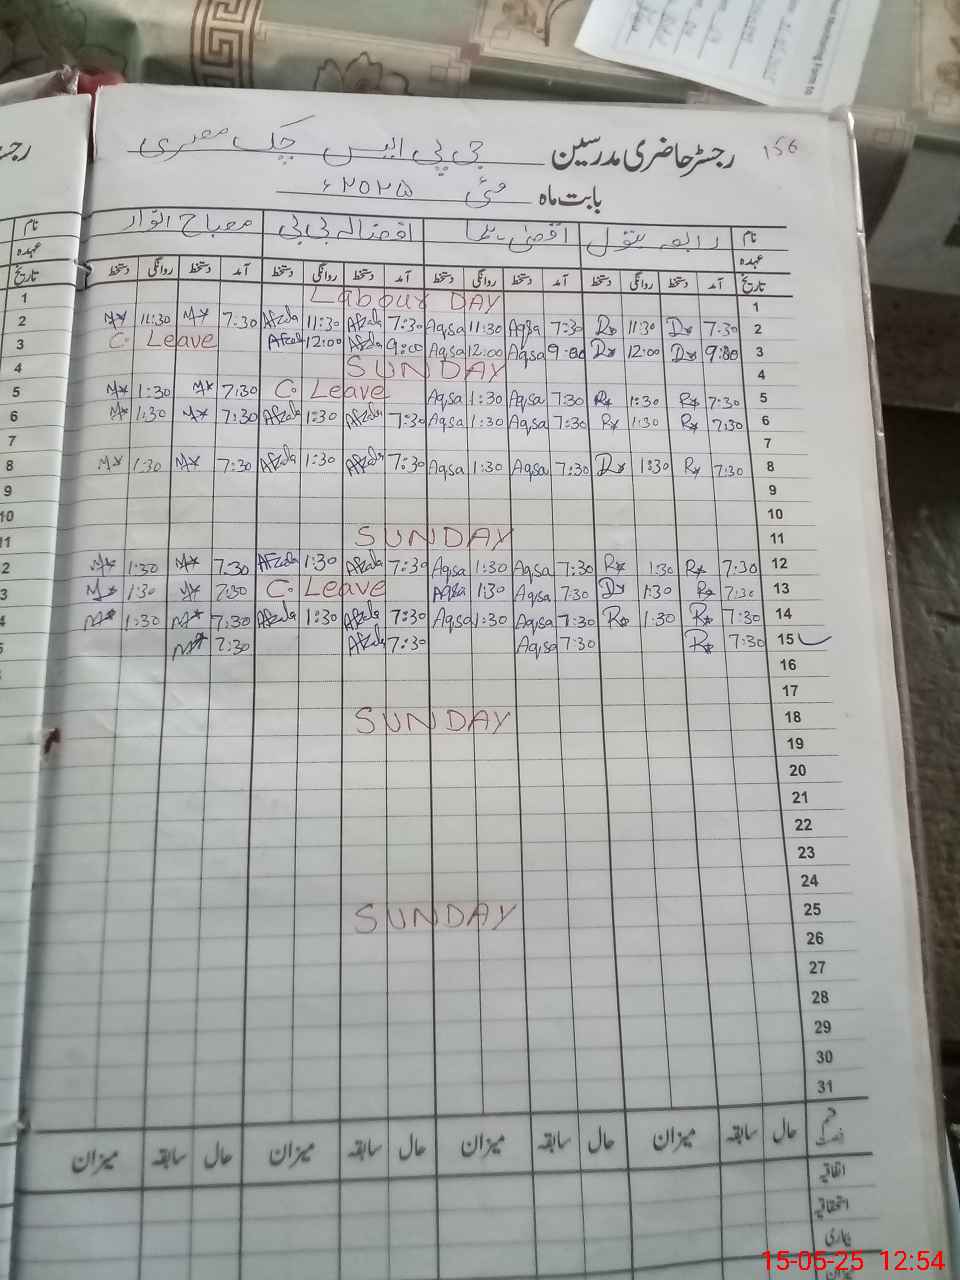 156
رجسٹر حاضری مدرسین جی پی ایس چک مصری
بابت ماہ مئی ۲۰۲۵ء
نام رابعہ بتول اقصیٰ افضالہ بی بی مصباح انوار نام
عہدہ عہدہ
تاریخ آمد دستخط روانگی دستخط آمد دستخط روانگی دستخط آمد دستخط روانگی دستخط آمد دستخط روانگی دستخط تاریخ
1 Labour DAY 1
2 M* 11:30 M* 7:30 Afzala 11:30 Afzala 7:30 Aqsa 11:30 Aqsa 7:30 R* 11:30 R* 7:30 2
3 C. Leave Afzala 12:00 Afzala 9:00 Aqsa 12:00 Aqsa 9:00 R* 12:00 R* 9:00 3
4 SUNDAY 4
5 M* 1:30 M* 7:30 C. Leave Aqsa 1:30 Aqsa 7:30 R* 1:30 R* 7:30 5
6 M* 1:30 M* 7:30 Afzala 1:30 Afzala 7:30 Aqsa 1:30 Aqsa 7:30 R* 1:30 R* 7:30 6
7 7
8 M* 1:30 M* 7:30 Afzala 1:30 Afzala 7:30 Aqsa 1:30 Aqsa 7:30 R* 1:30 R* 7:30 8
9 9
10 10
11 SUNDAY 11
2 M* 1:30 M* 7:30 Afzala 1:30 Afzala 7:30 Aqsa 1:30 Aqsa 7:30 R* 1:30 R* 7:30 12
3 M* 1:30 M* 7:30 C. Leave Aqsa 1:30 Aqsa 7:30 R* 1:30 R* 7:30 13
4 M* 1:30 M* 7:30 Afzala 1:30 Afzala 7:30 Aqsa 1:30 Aqsa 7:30 R* 1:30 R* 7:30 14
M* 7:30 Afzala 7:30 Aqsa 7:30 R* 7:30 15
16
17
SUNDAY 18
19
20
21
22
23
24
SUNDAY 25
26
27
28
29
30
31
حال سابقہ میزان حال سابقہ میزان حال سابقہ میزان
اتفاقیہ
استحقاقیہ
بیماری
میزان
15-05-25 12:54